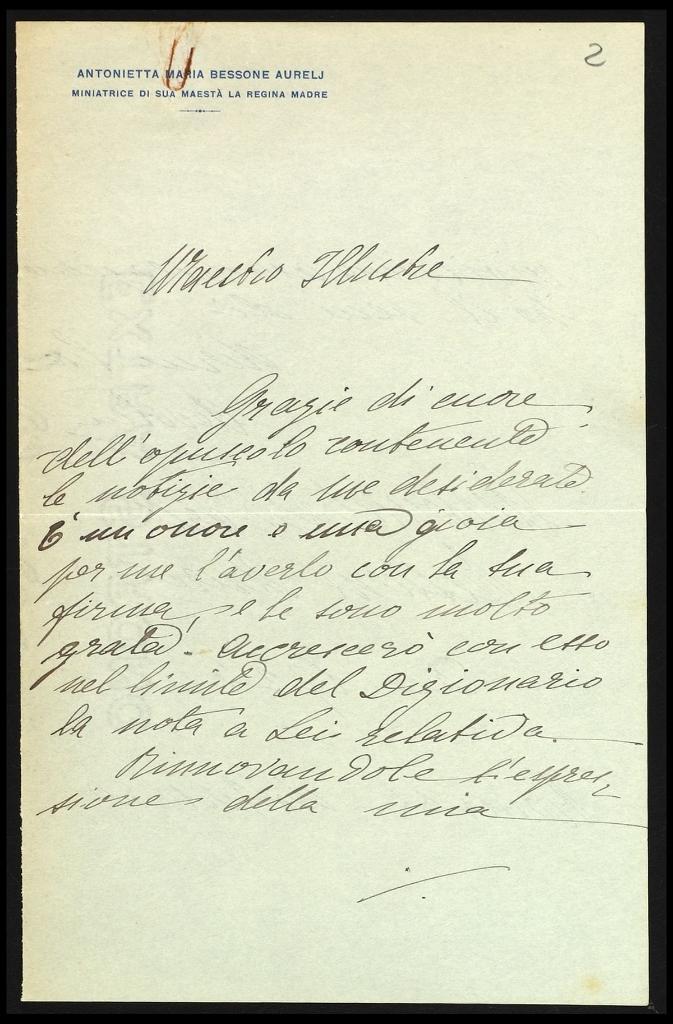 2
ANTONIETTA MARIA BESSONE AURELJ
MINIATRICE DI SUA MAESTÀ LA REGINA MADRE
Maestro Illustre
Grazie di cuore
dell'opuscolo contenente
le notizie da me desiderate.
È un onore e una gioia
per me l'averlo con la sua
firma, e le sono molto
grata. Accrescerò con esso
nel limite del Dizionario
la nota a Lei relativa.
Rinnovandole l'espres-
sione della mia